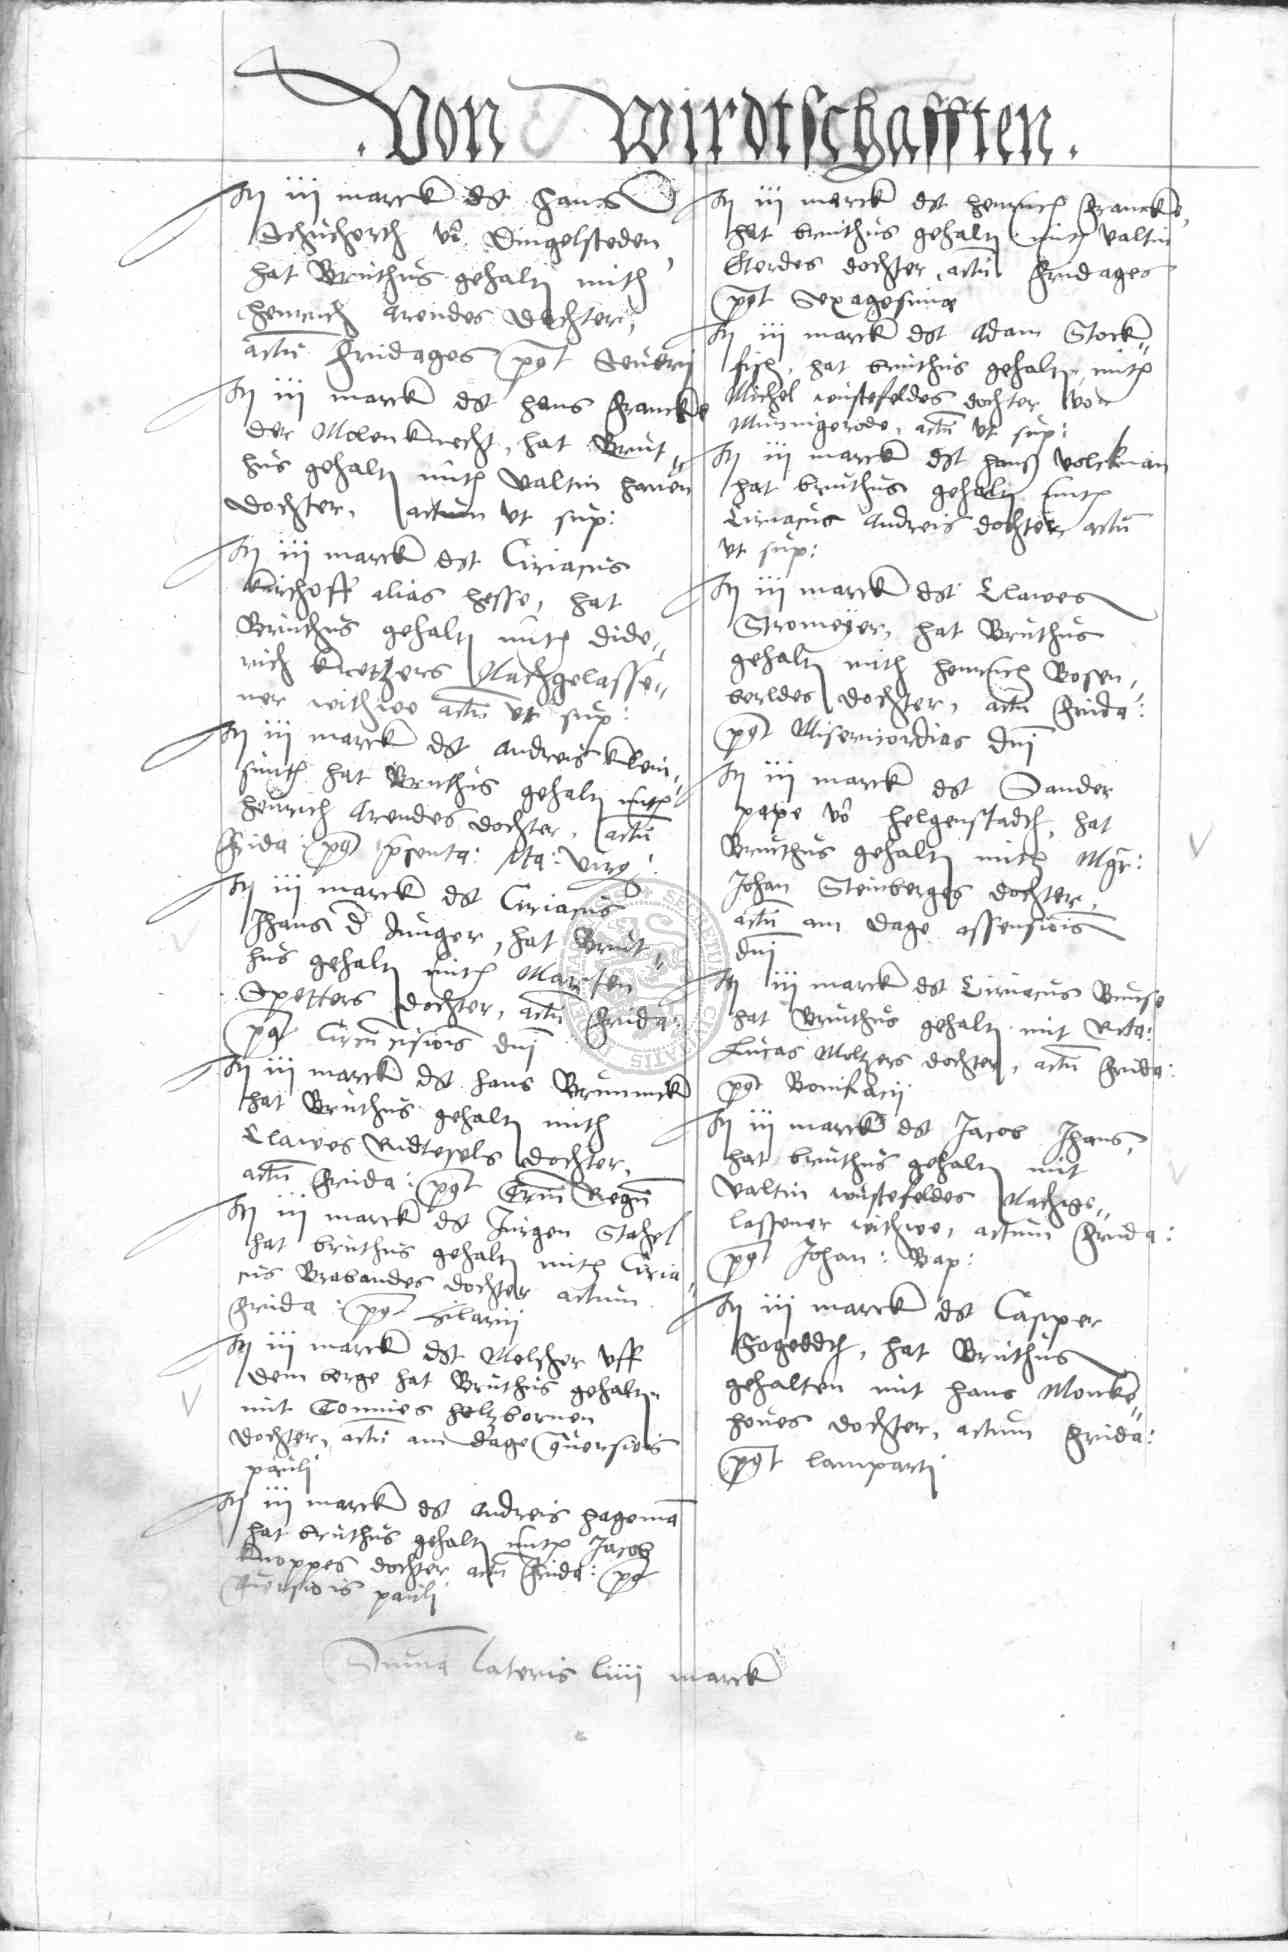 . Von Wirdtschafften .
It iii marck dt Hans
Schucherth vō Dingelsteden
hat Bruthus gehaltē mith
Heinrich Arendes dochter,
actū Fridages pꝯt Severi
It iii marck dt Hans Francke
der Molenknecht, hat Brut„
hus gehaltē mith Valtin Haven
dochter, actum vt sup:
It iii marck dt Ciriacus
Kirchoff alias Hesse, hat
Bruthus gehaltē mith Dide„
rich Kretzers Nachgelasse„
ner withwe actū vt sup:
It iii marck dt Andreis Klein„
smith hat Bruthus gehaltē mith
Heinrich Arendes dochter, actū
Frida: pꝯt psenta: Ma: virg:
It iii marck dt Ciriacus
Jhans d Junger, hat Brut„
hus gehaltē mith Marten
Spetters dochter, actū Frida:
pꝯt Circūcisiois dni
It iii marck dt Hans Brunnick
hat Bruthus gehaltē mith
Clawes Ridtesels dochter,
actū Frida: pꝯt Triū Regū
It iii marck dt Jurgen Stahel
hat bruthus gehaltē mith Ciria„
cus Brabandes dochter actum
Frida: pꝯt Hilarii
It iii marck dt Melcher vff
dem berge hat Bruthus gehaltē
mit Tonnies Heltzbornen
dochter, actū am dage ꝯversiois
pauli
It iii marck dt Andreis Hagemā
hat bruthus gehaltē mith Jacob
Knoppes dochter actū Frida: pꝯt
ꝯversiois pauli
It iii marck dt Heinrich Francke,
hat bruthus gehaltē mith Valtin
Gerdes dochter, actū Fridages
pꝯt Sexagesima
It iii marck dt Adam Stock„
fisch, hat bruthus gehaltē mith
Michel Wustefeldes dochter vor
Munnigerode, actū vt sup:
It iii marck dt Hans Volckman
hat bruthus gehaltē mith
Ciriacus Andreis dochter actū
vt sup:
It iii marck dt Clawes
Stromeyer, hat Bruthus
gehaltē mith Heinrich Rosen„
berldes dochter, actū Frida:
pꝯt Misericordias dni
It iii marck dt Sander
pape vō Helgenstadth, hat
Bruthus gehaltē mith Mgr:
Johan Steinberges dochter,
actū am dage assensiois
dni
It iii marck dt Ciriacus Bunse
hat Bruthus gehaltē mit
Lucas Meltzers dochter, actū Frida:
pꝯt Bonifacii
It iii marck dt Jacob Jhans,
hat bruthus gehaltē mit
Valtin Wustefeldes Nachge„
lassener withwe, actum Frida:
pꝯt Johan: Bap:
It iii marck dt Casper
Hagedth, hat Bruthus
gehalten mit Hans Monke„
hoves dochter, actum Frida:
pꝯt lamparti
Suma lateris liiii marck